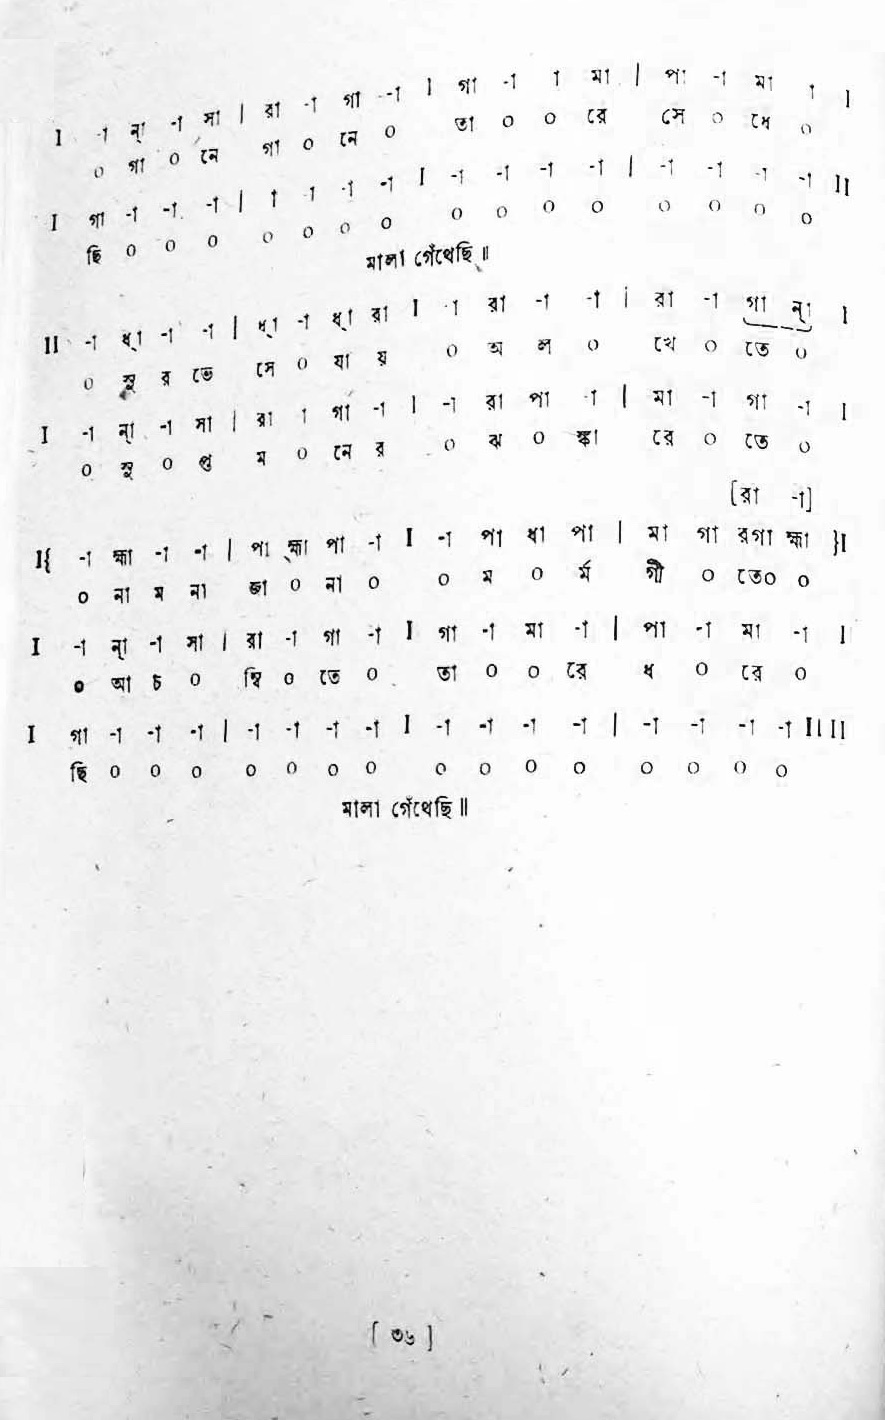 I -া ন্া -া সা | রা -া গা -া I গা -া া মা | পা -া মা া I
০ গা ০ নে গা ০ নে ০ তা ০ ০ রে সে ০ ধে ০
I গা -া -া -া | া -া -া -া I -া -া -া -া | -া -া -া -া II
ছি ০ ০ ০ ০ ০ ০ ০ ০ ০ ০ ০ ০ ০ ০ ০
মালা গেঁথেছি॥
II -া ধ্া -া -া | ধ্া -া ধ্া রা I -া রা -া -া | রা -া গা ন্া I
০ সু র ভে সে ০ যা য় ০ অ ল ০ খে ০ তে ০
I -া ন্া -া সা | রা া গা -া I -া রা পা -া | মা -া গা -া I
০ সু ০ প্ত ম ০ নে র ০ ঝ ০ ঙ্কা রে ০ তে ০
[রা -া]
I{ -া হ্মা -া -া | পা হ্মা পা -া I -া পা ধা পা | মা গা রগা হ্মা }I
০ না ম না জা ০ না ০ ০ ম ০ র্ম গী ০ তে০ ০
I -া ন্া -া সা | রা -া গা -া I গা -া মা -া | পা -া মা -া I
০ আ চ ০ ম্বি ০ তে ০ তা ০ ০ রে ধ ০ রে ০
I গা -া -া -া | -া -া -া -া I -া -া -া -া | -া -া -া -া II II
ছি ০ ০ ০ ০ ০ ০ ০ ০ ০ ০ ০ ০ ০ ০ ০
মালা গেঁথেছি॥
[ ৩৬ ]